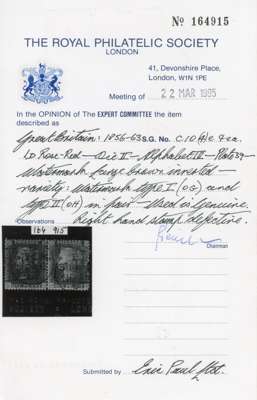 No 164915
THE ROYAL PHILATELIC SOCIETY
LONDON
41, Devonshire Place,
London, W1N 1PE
Meeting of 22 MAR 1995
In the OPINION of The EXPERT COMMITTEE the item
described as
Great Britain: 1856-63 S.G. No. C10
1d Rose-Red - Die II - Alphabet III - Plate 39 -
Watermark Large Crown inverted -
namely: Watermark Type I (OG) and
Type II (OH) in pair - Used is Genuine.
Right hand stamp defective.
Observations
Chairman
164 915
Submitted by